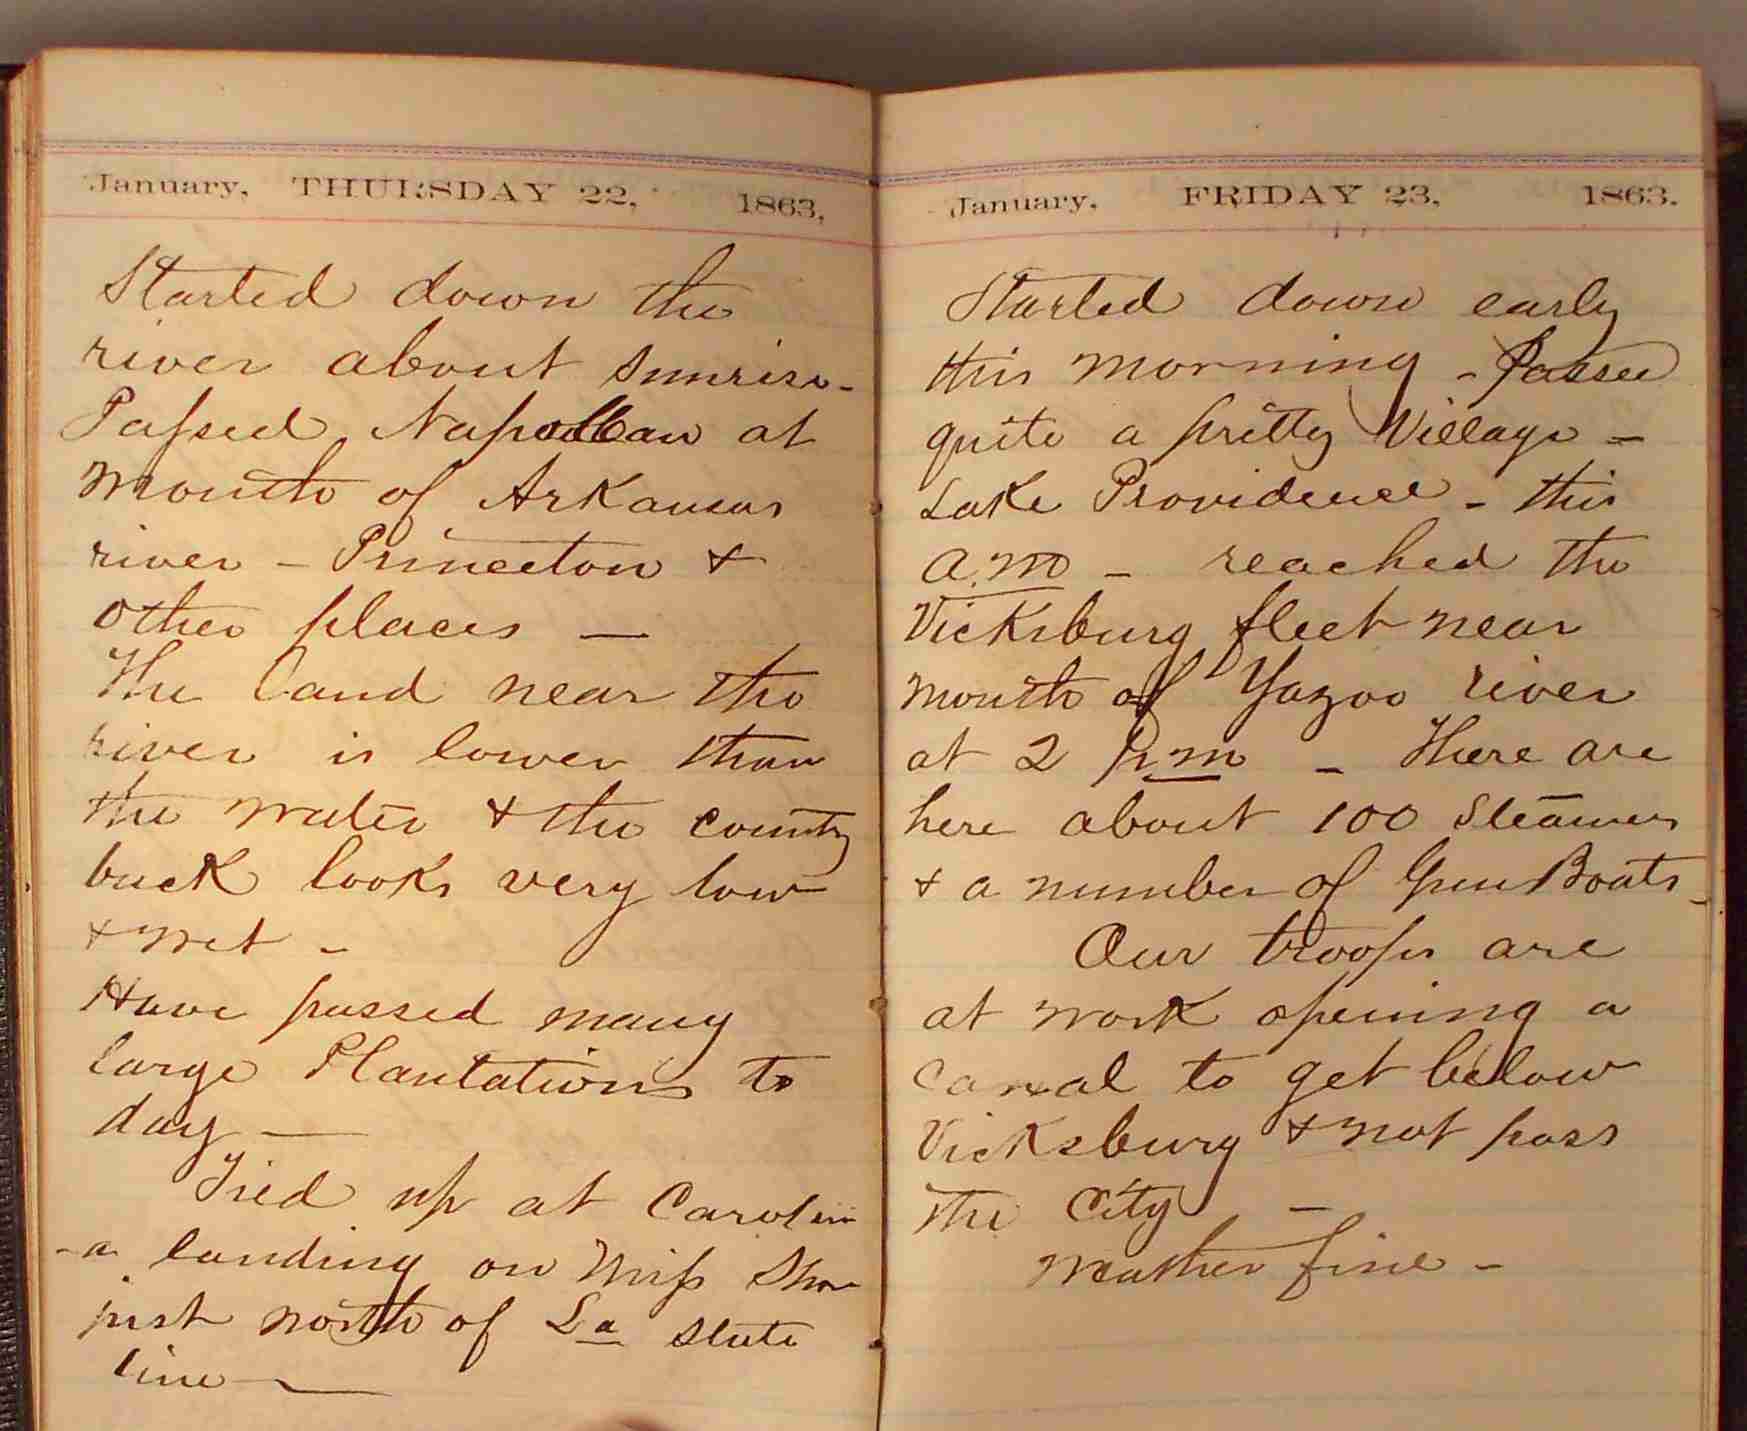 January, THURSDAY 22, 1863,
Started down the
river about sunrise -
Passed Napolean at
mouth of Arkansas
river - Princeton &
other places —
The land near the
river is lower than
the water & the country
back looks very low
& wet -
Have passed many
large Plantations to
day —
Tied up at Carolin
-a landing on Miss Shore
just north of La State
line —
January, FRIDAY 23, 1863.
Started down early
this morning - Passed
quite a pritty Village -
Lake Providence - this
a.m - reached the
Vicksburg fleet near
mouth of Yazoo river
at 2 p.m - There are
here about 100 Steamers
& a number of Gun Boats -
Our troops are
at work opening a
canal to get below
Vicksburg & not pass
the City -
Weather fine -